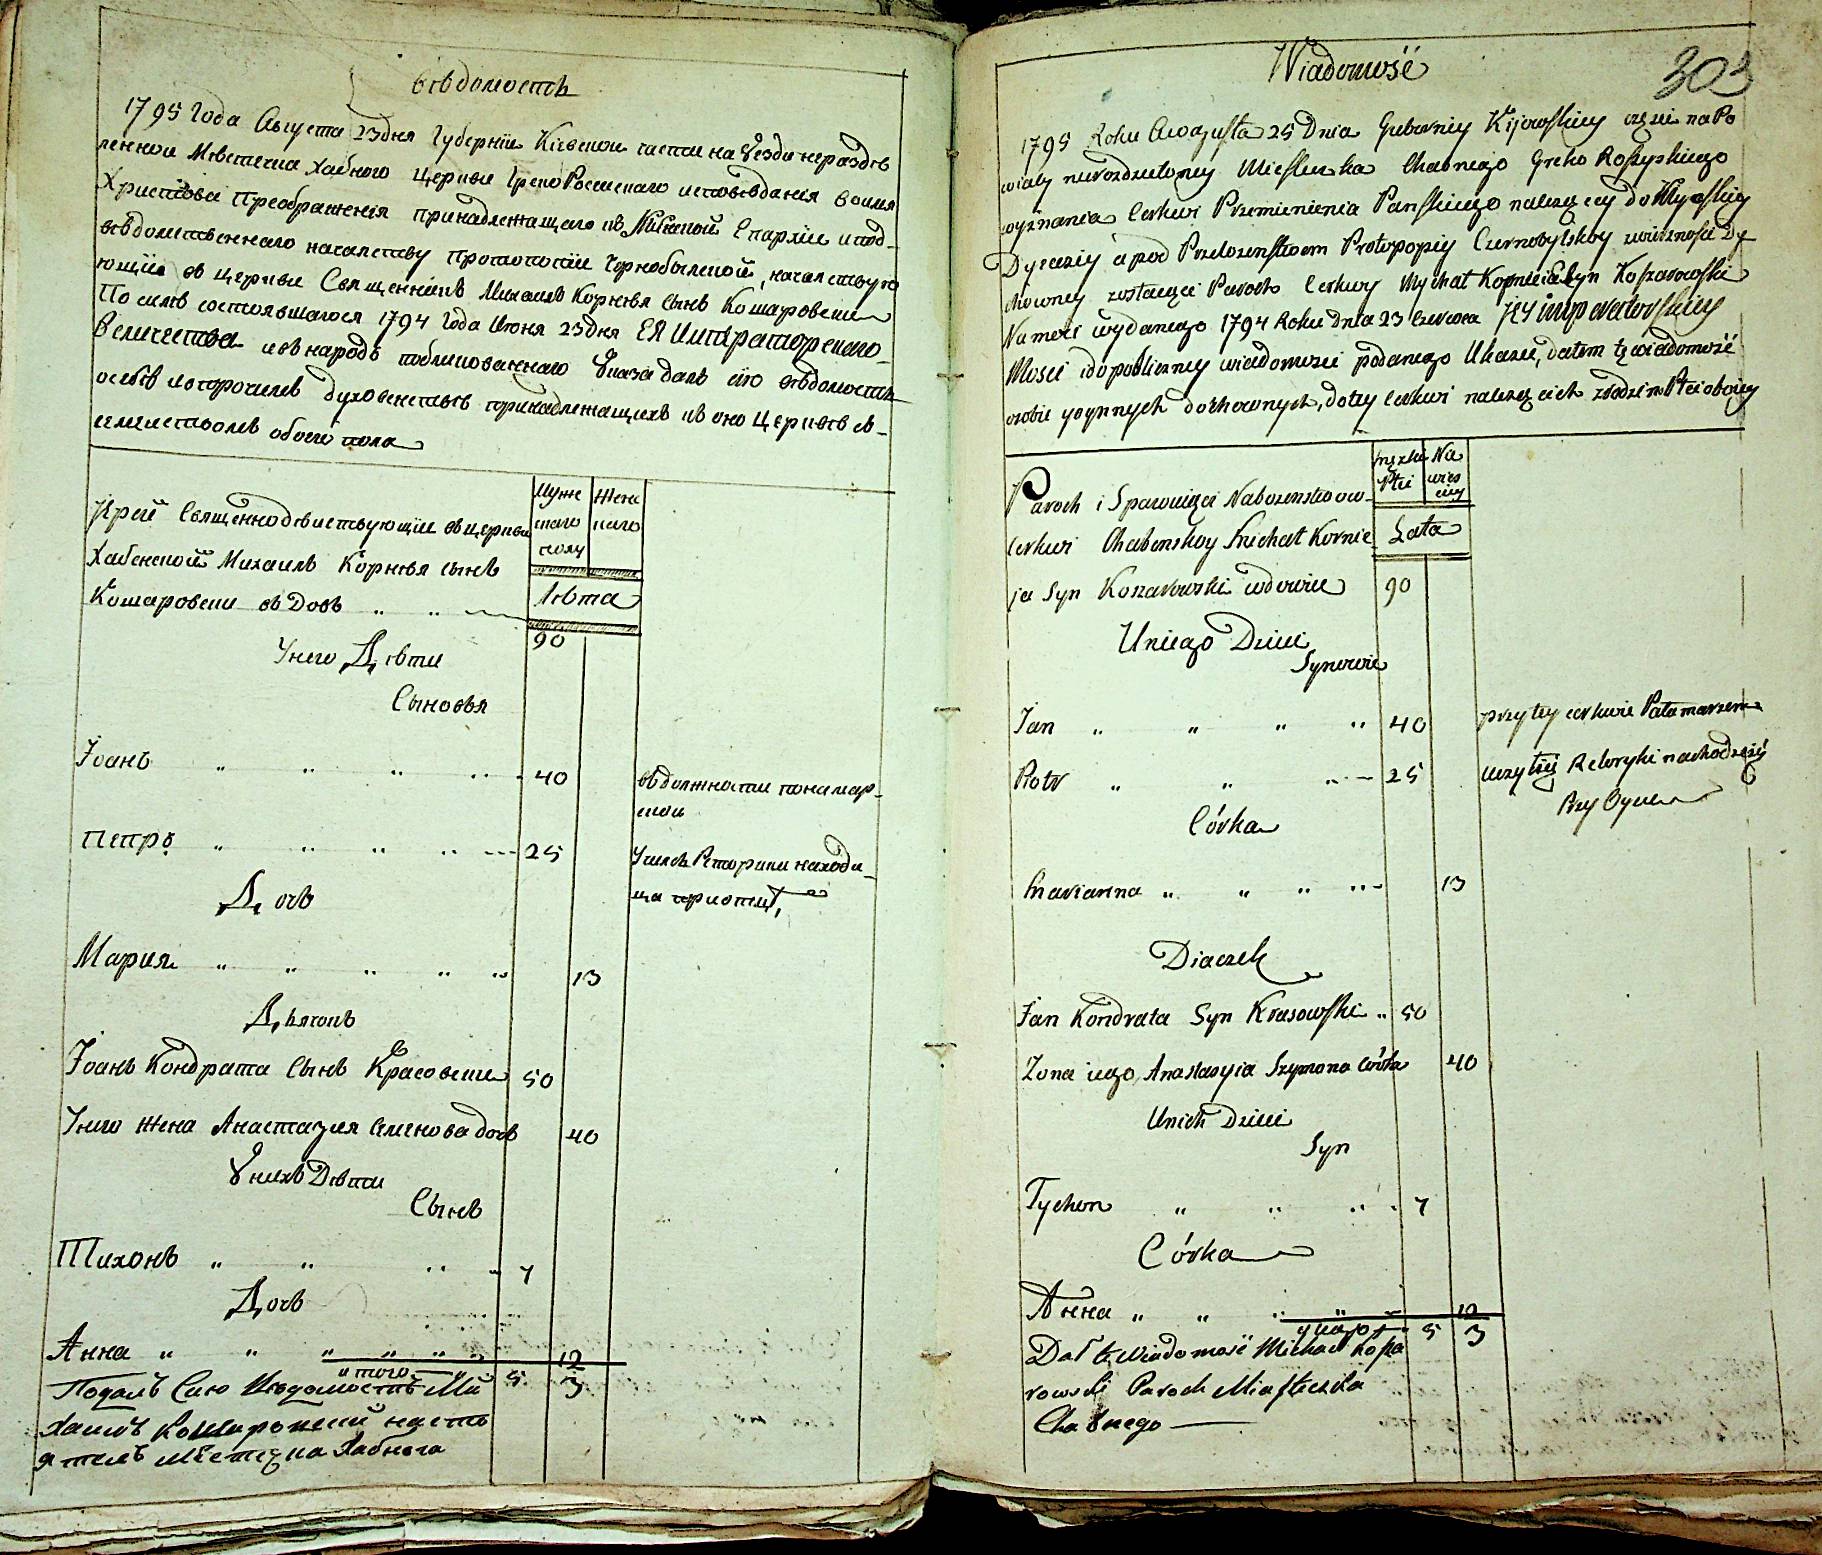 вѣдомость
1795 Года Августа 23 дня Губернїи Кіевской части на Уезди нероздѣ
ленной Мѣстечка Хабного Церкви Греко Россискаго исповѣданія во имя
Христова Преображенія принадлежащаго къ Епархіи и под-
вѣдомственнаго началству протопопіи Чорнобылской, началствую
ющїи въ церкви Священникъ Михаилъ Корнѣя сынъ Кошаровски
По силѣ состоявшагося 1794 Года Июня 23 дня ЕЯ Императорскаго
Величества и въ народъ публикованнаго Указа далъ сїю вѣдомость
осебѣ и о протчихъ Духовенствѣ принадлежащихъ къ оно Церквѣ с-
семействомъ обоего пола
Муже
скаго
полу
Жена
скаго
Лѣта
Ірей Священнодѣиствующїи въ церкви
Хабенской Михаилъ Корнѣя сынъ
Кошаровски вѣдовъ „ „ 90
Унего Дѣти
Сыновья
Іоанъ „ „ „ „ 40 въ должности понамар-
ской
Петро „ „ „ „ 25 Училсѧ Реторики находи-
ца при отцу
Дочь
Мария „ „ „ „ „ 13
Дьячокъ
Іоанъ Кондрата Сынъ Красовски 50
Унего жена Анастазия Семенова дочь 40
У нихъ Дѣти
Сынъ
Тихонъ „ „ „ 7
Дочь
Анна „ „ „ „ „ „ 12
итого 5 3
Подалъ Сию Вѣдомостъ Ми
хаилъ Кошаровский насто
ятель мѣстечка Хабного
Wiadomość
303
1795 Roku Awgusta 25 Dnia Guberniy Kijowskiey częsci na Po
wiaty nierozdzieloney Miesteczka Chabnego Greko Roszyskiego
wyznania Cerkwi Przemienienia Panskiego należącey do
Dyecezij á pod Przelozenstwem Protopopiy Czernobylskoy zwierznosci Du
chowney zostaięci Paroch Cerkwy Mychał Korniia Syn Koszarowski
Na mocy wydanego 1794 Roku Dnia 23 Czerwca Jey imperatorskiey
Mosci i do publiczney wiadomosci podanego Ukazu, dałem tę wiadomość
osobie y o ynnych duchownych, do tey Cerkwi nalezących z Rodzino Płci oboiey
męzkiey
Płci
Nie
wies
ciey
Lata
Paroch i Sprawuięci Nabozenstwo w
cerkwi Chabenskoy Michał Kornie
ja Syn Koszarowski wdowiec 90
U niego Dzieci
Synowie
Jan „ „ „ „ 40 przy tey cerkwie Pałamarzem
Piotr „ „ „ 25 uczył się Retoryki nachodzi się
Przy Oycu
Córka
Marianna „ „ „ „ 13
Diaczek
Jan Kondrata Syn Krasowski „ 50
Żona iego Anastazyia Szymona córka 40
U nich Dzieci
Syn
Tychon „ „ „ 7
Córka
Анна „ „ „ „ 12
5 3
Dał tę Wiadomość Michał Kosza
rowski Paroch Miasteczka
Chabnego